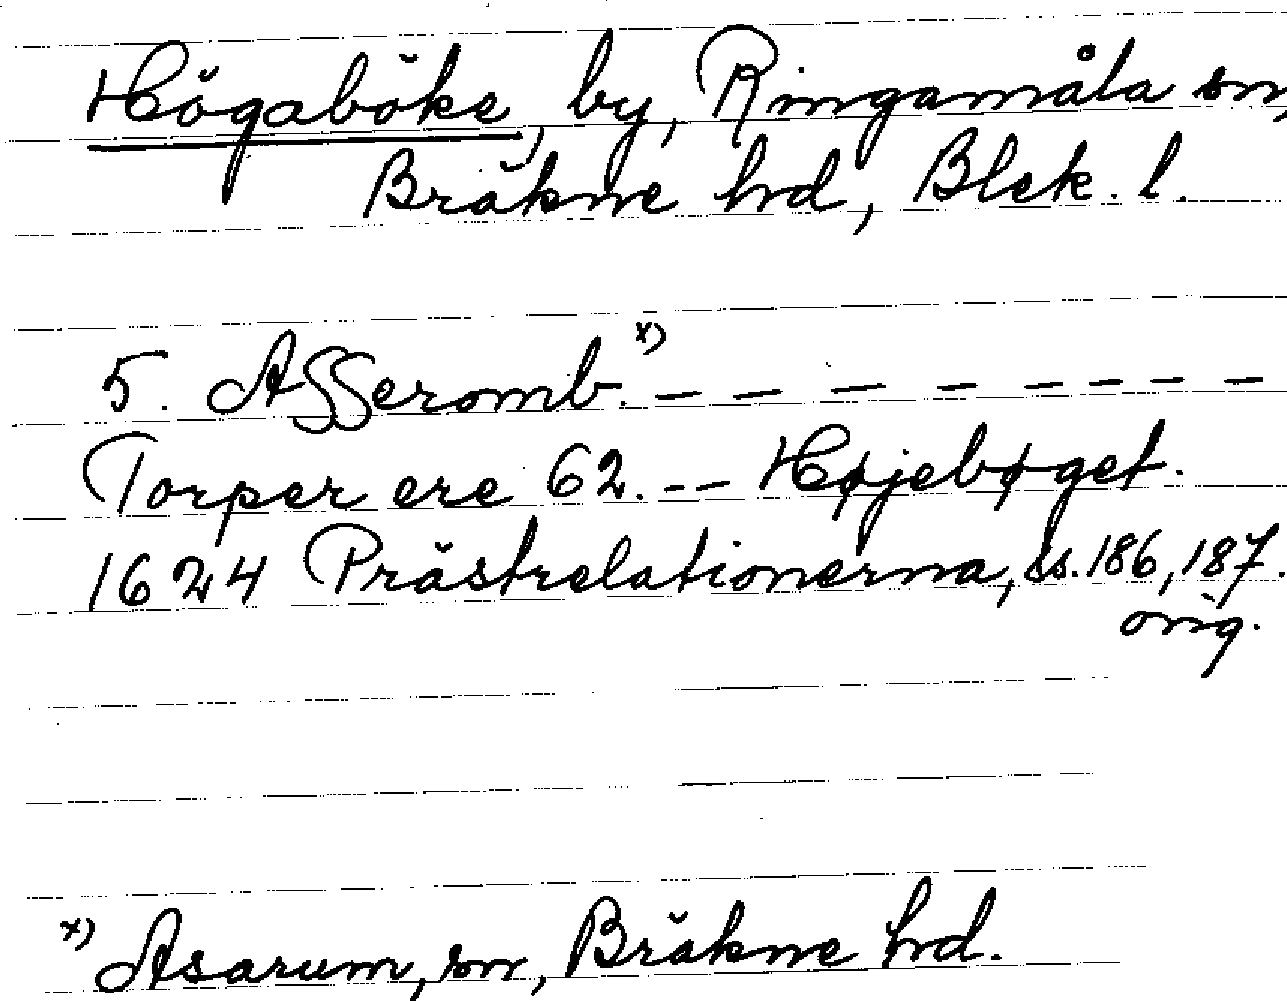 Högaböke, by, Ringamåla sn,
Bräkne hd, Blek. l.
5. Asseromb. x) — — — — — — — —
Torper ere 62. -- Højebøget.
1624 Prästrelationerna, ss. 186, 187.
orig.
x) Asarum, sn, Bräkne hd.